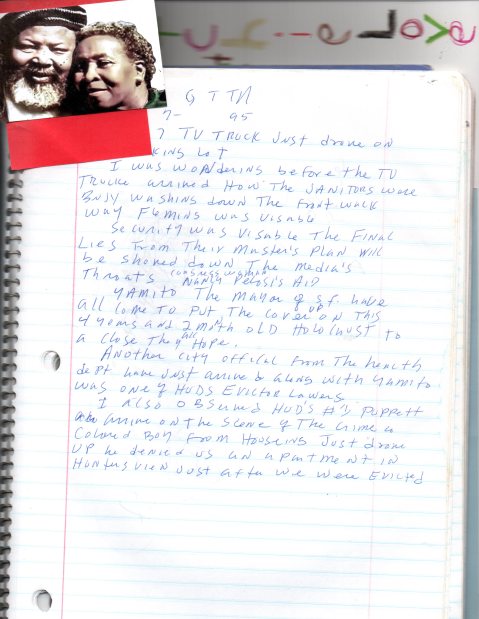 e L o v e
G T TN
7- 95
7 TV TRUCK JUST drove on
KING LoT
I was wondering before the TV
Trucke arrived How The JANITORS were
Busy washing down The Front walk
way Flemins was visable
Security was visable The Final
Lies From Their Master's Plan will
be shoved down The media's
Throats congresswoman Nancy Pelosi's AiD
YAMITO The Mayor of S.f. have
all come To PuT The Cover UP ON This
4 years and 2 month OLD HoloCaust To
a close They all Hope.
ANother City offical From The health
dept have Just arrived along with Yamito
was one of HUDS Evictor Lawers.
I Also observed HUD'S #'3 Puppett
also arrive on The scene of The Crime a
Colored Boy From Houseing Just drove
UP he denied us an apartment in
Hunters view Just after we were Evicted